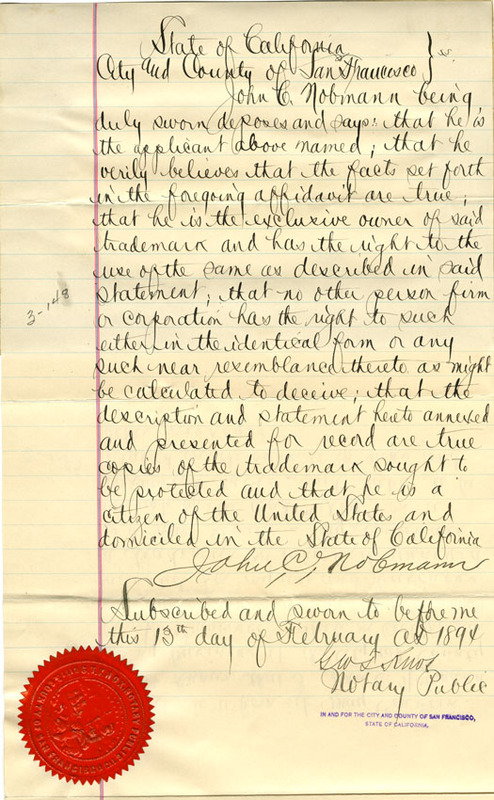 State of California
City and County of San Francisco } ss.
John C. Nobmann being,
duly sworn deposes and says: that he is
the applicant above named; that he
verily believes that the facts set forth
in the foregoing affidavit are true;
that he is the exclusive owner of said
trademark and has the right to the
use of the same as described in said
statement; that no other person firm
or corporation has the right to such
either in the identical form or any
such near resemblance thereto as might
be calculated to deceive; that the
description and statement hereto annexed
and presented for record are true
copies of the trademark sought to
be protected and that he is a
citizen of the United States and
domiciled in the State of California
John C. Nobmann
Subscribed and sworn to before me
this 13th day of February AD 1894
Geo T Knox
Notary Public
IN AND FOR THE CITY AND COUNTY OF SAN FRANCISCO,
STATE OF CALIFORNIA.
3-148